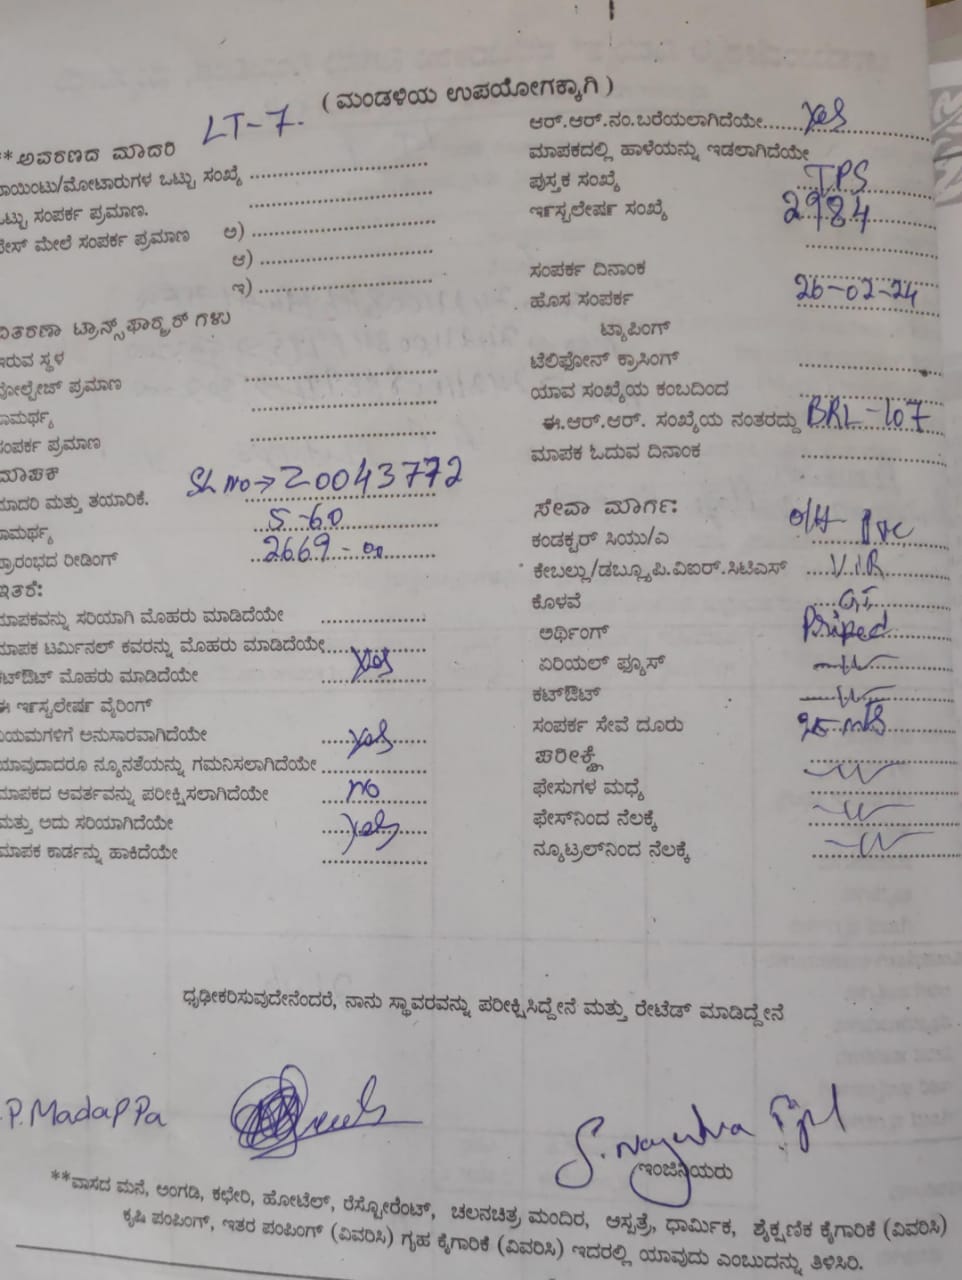 ( ಮಂಡಳಿಯ ಉಪಯೋಗಕ್ಕಾಗಿ )
**ಅವರಣದ ಮಾದರಿ LT-7.
ಪಾಯಿಂಟು/ಮೋಟಾರುಗಳ ಒಟ್ಟು ಸಂಖ್ಯೆ
ಒಟ್ಟು ಸಂಪರ್ಕ ಪ್ರಮಾಣ.
ಫೇಸ್ ಮೇಲೆ ಸಂಪರ್ಕ ಪ್ರಮಾಣ ಅ)
ಆ)
ಇ)
ವಿತರಣಾ ಟ್ರಾನ್ಸ್‌ಫಾರ್ಮರ್ ಗಳು
ಇರುವ ಸ್ಥಳ
ವೋಲ್ಟೇಜ್ ಪ್ರಮಾಣ
ಸಾಮರ್ಥ್ಯ
ಸಂಪರ್ಕ ಪ್ರಮಾಣ
ಮಾಪಕ
ಮಾದರಿ ಮತ್ತು ತಯಾರಿಕೆ. SL No→ 20043772
ಸಾಮರ್ಥ್ಯ 5-60
ಪ್ರಾರಂಭದ ರೀಡಿಂಗ್ 2669-00
ಇತರೆ:
ಮಾಪಕವನ್ನು ಸರಿಯಾಗಿ ಮೊಹರು ಮಾಡಿದೆಯೇ
ಮಾಪಕ ಟರ್ಮಿನಲ್ ಕವರನ್ನು ಮೊಹರು ಮಾಡಿದೆಯೇ
ಕಟ್‌ಔಟ್ ಮೊಹರು ಮಾಡಿದೆಯೇ Yes
ಈ ಇನ್‌ಸ್ಟಲೇಷನ್ ವೈರಿಂಗ್
ನಿಯಮಗಳಿಗೆ ಅನುಸಾರವಾಗಿದೆಯೇ Yes
ಯಾವುದಾದರೂ ನ್ಯೂನತೆಯನ್ನು ಗಮನಿಸಲಾಗಿದೆಯೇ
ಮಾಪಕದ ಆವರ್ತವನ್ನು ಪರೀಕ್ಷಿಸಲಾಗಿದೆಯೇ NO
ಮತ್ತು ಅದು ಸರಿಯಾಗಿದೆಯೇ Yes
ಮಾಪಕ ಕಾರ್ಡನ್ನು ಹಾಕಿದೆಯೇ
ಆರ್.ಆರ್.ನಂ.ಬರೆಯಲಾಗಿದೆಯೇ Yes
ಮಾಪಕದಲ್ಲಿ ಹಾಳೆಯನ್ನು ಇಡಲಾಗಿದೆಯೇ
ಪುಸ್ತಕ ಸಂಖ್ಯೆ TPS
ಇನ್‌ಸ್ಟಲೇಷನ್ ಸಂಖ್ಯೆ 2984
ಸಂಪರ್ಕ ದಿನಾಂಕ
ಹೊಸ ಸಂಪರ್ಕ 26-02-24
ಟ್ಯಾಪಿಂಗ್
ಟೆಲಿಫೋನ್ ಕ್ರಾಸಿಂಗ್
ಯಾವ ಸಂಖ್ಯೆಯ ಕಂಬದಿಂದ
ಈ.ಆರ್.ಆರ್. ಸಂಖ್ಯೆಯ ನಂತರದ್ದು BRL-107
ಮಾಪಕ ಓದುವ ದಿನಾಂಕ
ಸೇವಾ ಮಾರ್ಗ:
ಕಂಡಕ್ಟರ್ ಸಿಯು/ಎ O/H PVC
ಕೇಬಲ್ಲು/ಡಬ್ಲ್ಯೂಪಿ.ವಿಐಆರ್.ಸಿಟಿಎಸ್ V.I.R
ಕೊಳವೆ GI
ಅರ್ಥಿಂಗ್
ಏರಿಯಲ್ ಫ್ಯೂಸ್
ಕಟ್‌ಔಟ್
ಸಂಪರ್ಕ ಸೇವೆ ದೂರು
ಪರೀಕ್ಷೆ
ಫೇಸುಗಳ ಮಧ್ಯೆ
ಫೇಸ್‌ನಿಂದ ನೆಲಕ್ಕೆ
ನ್ಯೂಟ್ರಲ್‌ನಿಂದ ನೆಲಕ್ಕೆ
ಧೃಢೀಕರಿಸುವುದೇನೆಂದರೆ, ನಾನು ಸ್ಥಾವರವನ್ನು ಪರೀಕ್ಷಿಸಿದ್ದೇನೆ ಮತ್ತು ರೇಟೆಡ್ ಮಾಡಿದ್ದೇನೆ
P.Madappa
ಇಂಜಿನಿಯರು
**ವಾಸದ ಮನೆ, ಅಂಗಡಿ, ಕಛೇರಿ, ಹೋಟೆಲ್, ರೆಸ್ಟೋರೆಂಟ್, ಚಲನಚಿತ್ರ ಮಂದಿರ, ಆಸ್ಪತ್ರೆ, ಧಾರ್ಮಿಕ, ಶೈಕ್ಷಣಿಕ ಕೈಗಾರಿಕೆ (ವಿವರಿಸಿ)
ಕೃಷಿ ಪಂಪಿಂಗ್, ಇತರ ಪಂಪಿಂಗ್ (ವಿವರಿಸಿ) ಗೃಹ ಕೈಗಾರಿಕೆ (ವಿವರಿಸಿ) ಇದರಲ್ಲಿ ಯಾವುದು ಎಂಬುದನ್ನು ತಿಳಿಸಿರಿ.